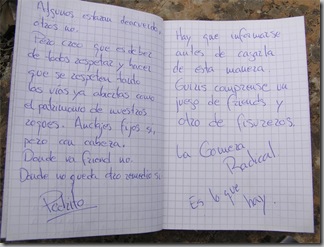 Algunos estaran deacuerdo,
otros no.
Pero creo que es deber
de todos respetar y hacer
que se respeten tanto
las vías ya abiertas como
el patrimonio de nuestros
roques. Anclajes fijos si,
pero con cabeza.
Donde va friend no.
Donde no queda otro remedio si.
Hay que informarse
antes de cagarla
de ésta manera.
Guirus comprense un
juego de friends y
otro de fisureros.
La Gomera
Radical
Es lo que
hay.